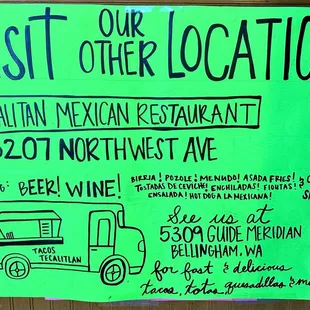 ISIT OUR OTHER LOCATIO
ALITAN MEXICAN RESTAURANT
3207 NORTHWEST AVE
G: BEER! WINE!
BIRRIA! POZOLE! MENUDO! ASADA FRIES!
TOSTADAS DE CEVICHE! ENCHILADAS! FLOUTAS! &
ENSALADA! HOT DOG A LA MEXICANA!
TACOS
TECALITLAN
See us at
5309 GUIDE MERIDIAN
BELLINGHAM, WA
for fast & delicious
tacos, tortas, quesadillas & m